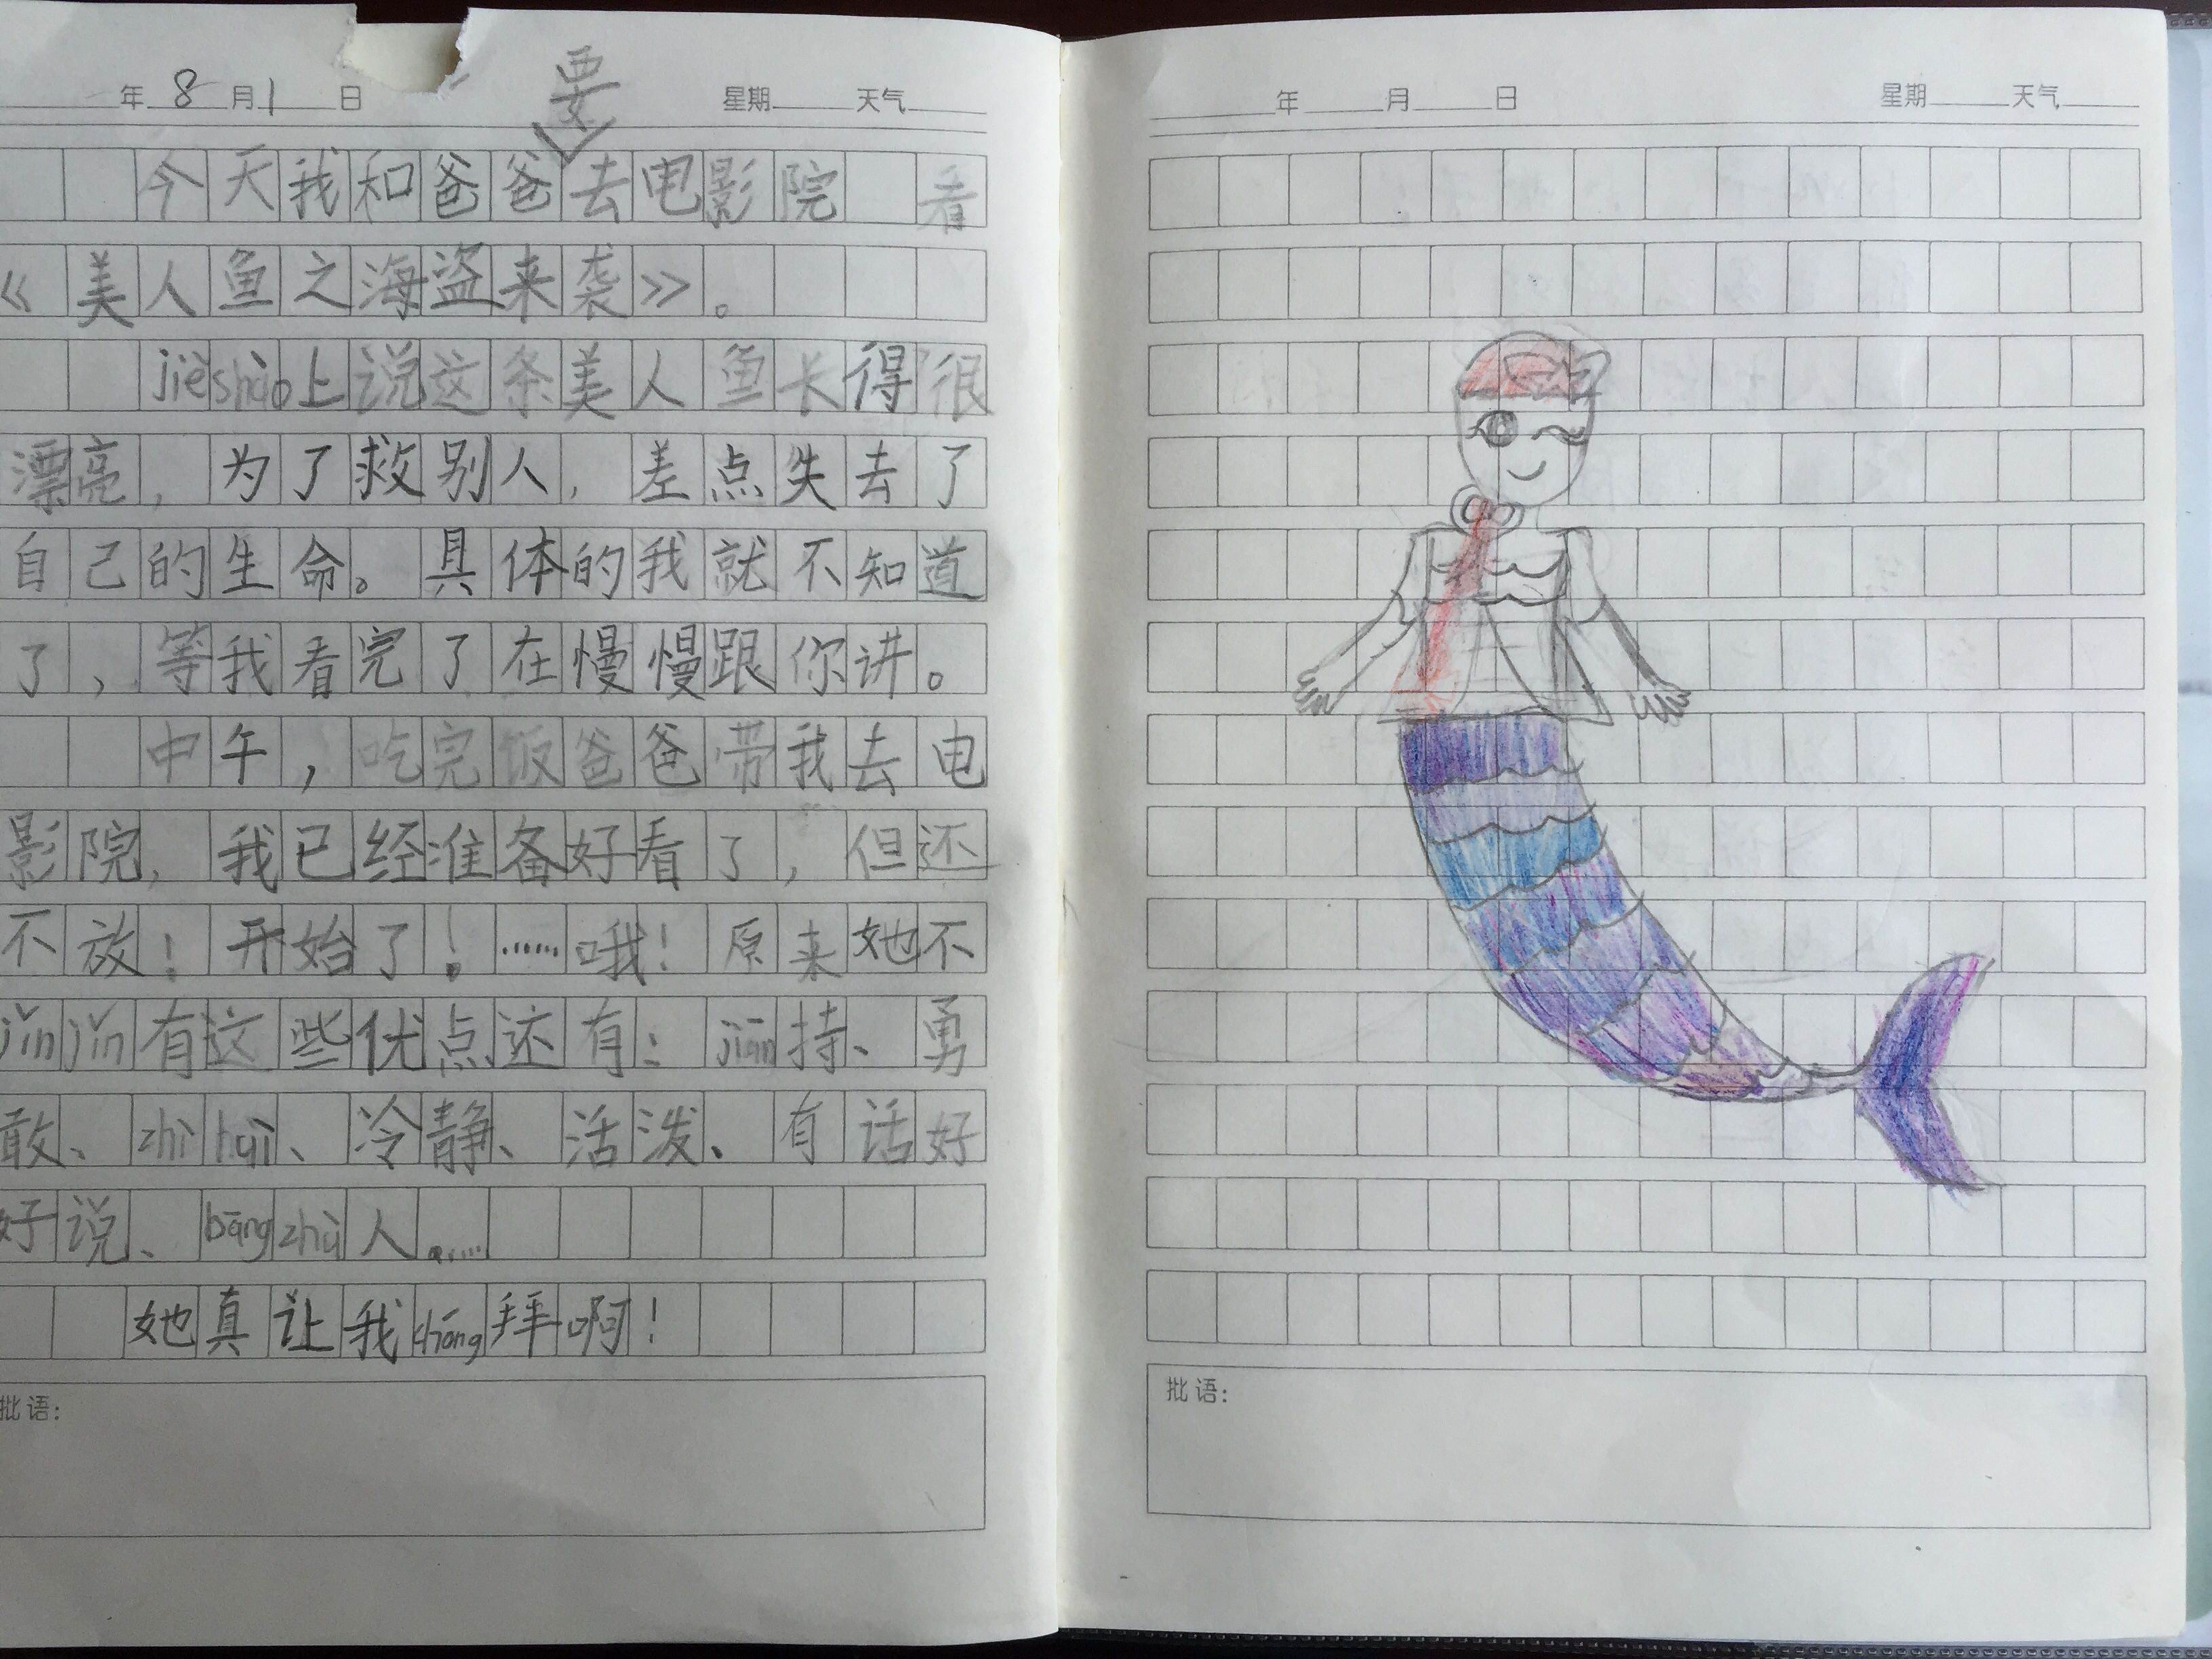 年 8 月 1 日 星期 天气
今天我和爸爸要去电影院 看
《美人鱼之海盗来袭》。
jièshào上说这条美人鱼长得很
漂亮，为了救别人，差点失去了
自己的生命。具体的我就不知道
了，等我看完了在慢慢跟你讲。
中午，吃完饭爸爸带我去电
影院，我已经准备好看了，但还
不放！开始了！……哦！原来她不
jǐn jǐn 有这些优点还有：jiān持、勇
敢、zhì huì、冷静、活泼、有话好
好说、bāng zhù 人……
她真让我chóng拜啊！
批语：
年 月 日 星期 天气
批语：